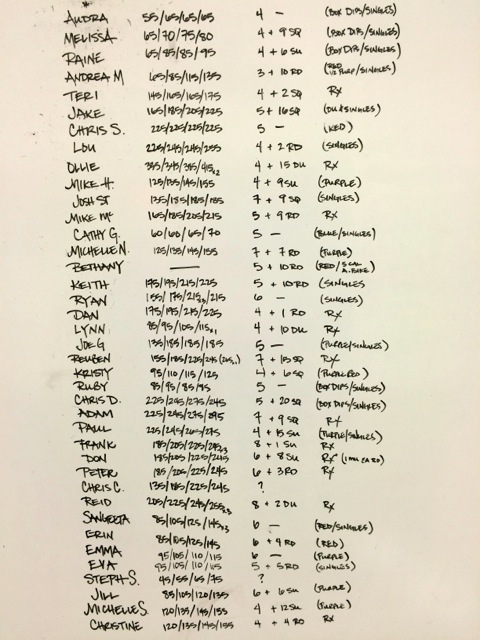 AUDRA 55/65/65/65 4 — (BOX DIPS/SINGLES)
MELISSA 65/70/75/80 4 + 9 SQ (BOX DIPS/SINGLES)
RAINE 65/85/85/95 4 + 6 SU (BOX DIPS/SINGLES)
ANDREA M 65/85/115/135 3 + 10 RD (RED /SINGLES)
TERI 145/165/165/175 4 + 2 SQ RX
JAKE 165/185/205/225 5 + 16 SQ (DU/SINGLES)
CHRIS S. 225/225/225/225 5 — (RED)
LOU 225/245/245/255 4 + 2 RD (SINGLES)
OLLIE 4 + 15 DU RX
MIKE H. 125/135/145/155 4 + 9 SU (PURPLE)
JOSH ST 135/185/185/185 7 + 9 SQ (SINGLES)
MIKE MC 165/185/205/215 5 + 9 RD RX
CATHY G. 60/60/65/70 5 — (BLUE/SINGLES)
MICHELLE N. 125/135/145/155 7 + 7 RD (PURPLE)
BETHANY — 5 + 10 RD (RED/5 CAL A. BIKE)
KEITH 175/195/215/225 5 + 10 RD (SINGLES
RYAN 155/175/215x3/215 6 — (SINGLES)
DAN 175/195/215/225 4 + 1 RD RX
LYNN 85/95/105/115x1 4 + 10 DU RX
JOE G 135/185/185/185 5 — (PURPLE/SINGLES)
REUBEN 155/185/225/245 7 + 15 SQ RX
KRISTY 95/110/115/125 4 + 6 SQ (PURPLE RED)
RUBY 85/95/85/85 5 — (BOX DIPS/SINGLES)
CHRIS D. 225/245/275/245 5 + 20 SQ (BOX DIPS/SINGLES)
ADAM 225/245/275/295 7 + 9 SQ RX
PAUL 225/245/265/275 4 + 15 SU (PURPLE/SINGLES)
FRANK 185/205/225/245x3 8 + 1 SU RX
DON 185/205/225/245 6 + 8 SU RX
PETER 185/205/225/245 6 + 3 RD RX
CHRIS C. 135/185/225/245 ?
REID 205/225/245/255x3 8 + 2 DU RX
SANGEETA 85/105/125/145x3 6 — (RED/SINGLES)
ERIN 85/105/125/145 6 + 9 RD (RED)
EMMA 95/105/110/115 6 — (PURPLE)
EVA 95/105/110/115 5 + 5 RD (SINGLES)
STEPH S. 45/55/65/75 ?
JILL 85/105/120/135 6 + 6 SU (PURPLE)
MICHELLE S. 120/135/145/155 4 + 12 SU (PURPLE)
CHRISTINE 120/135/145/155 4 + 4 RD RX